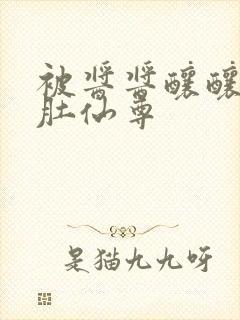 被酱酱酿酿
肚仙尊
是猫九九呀